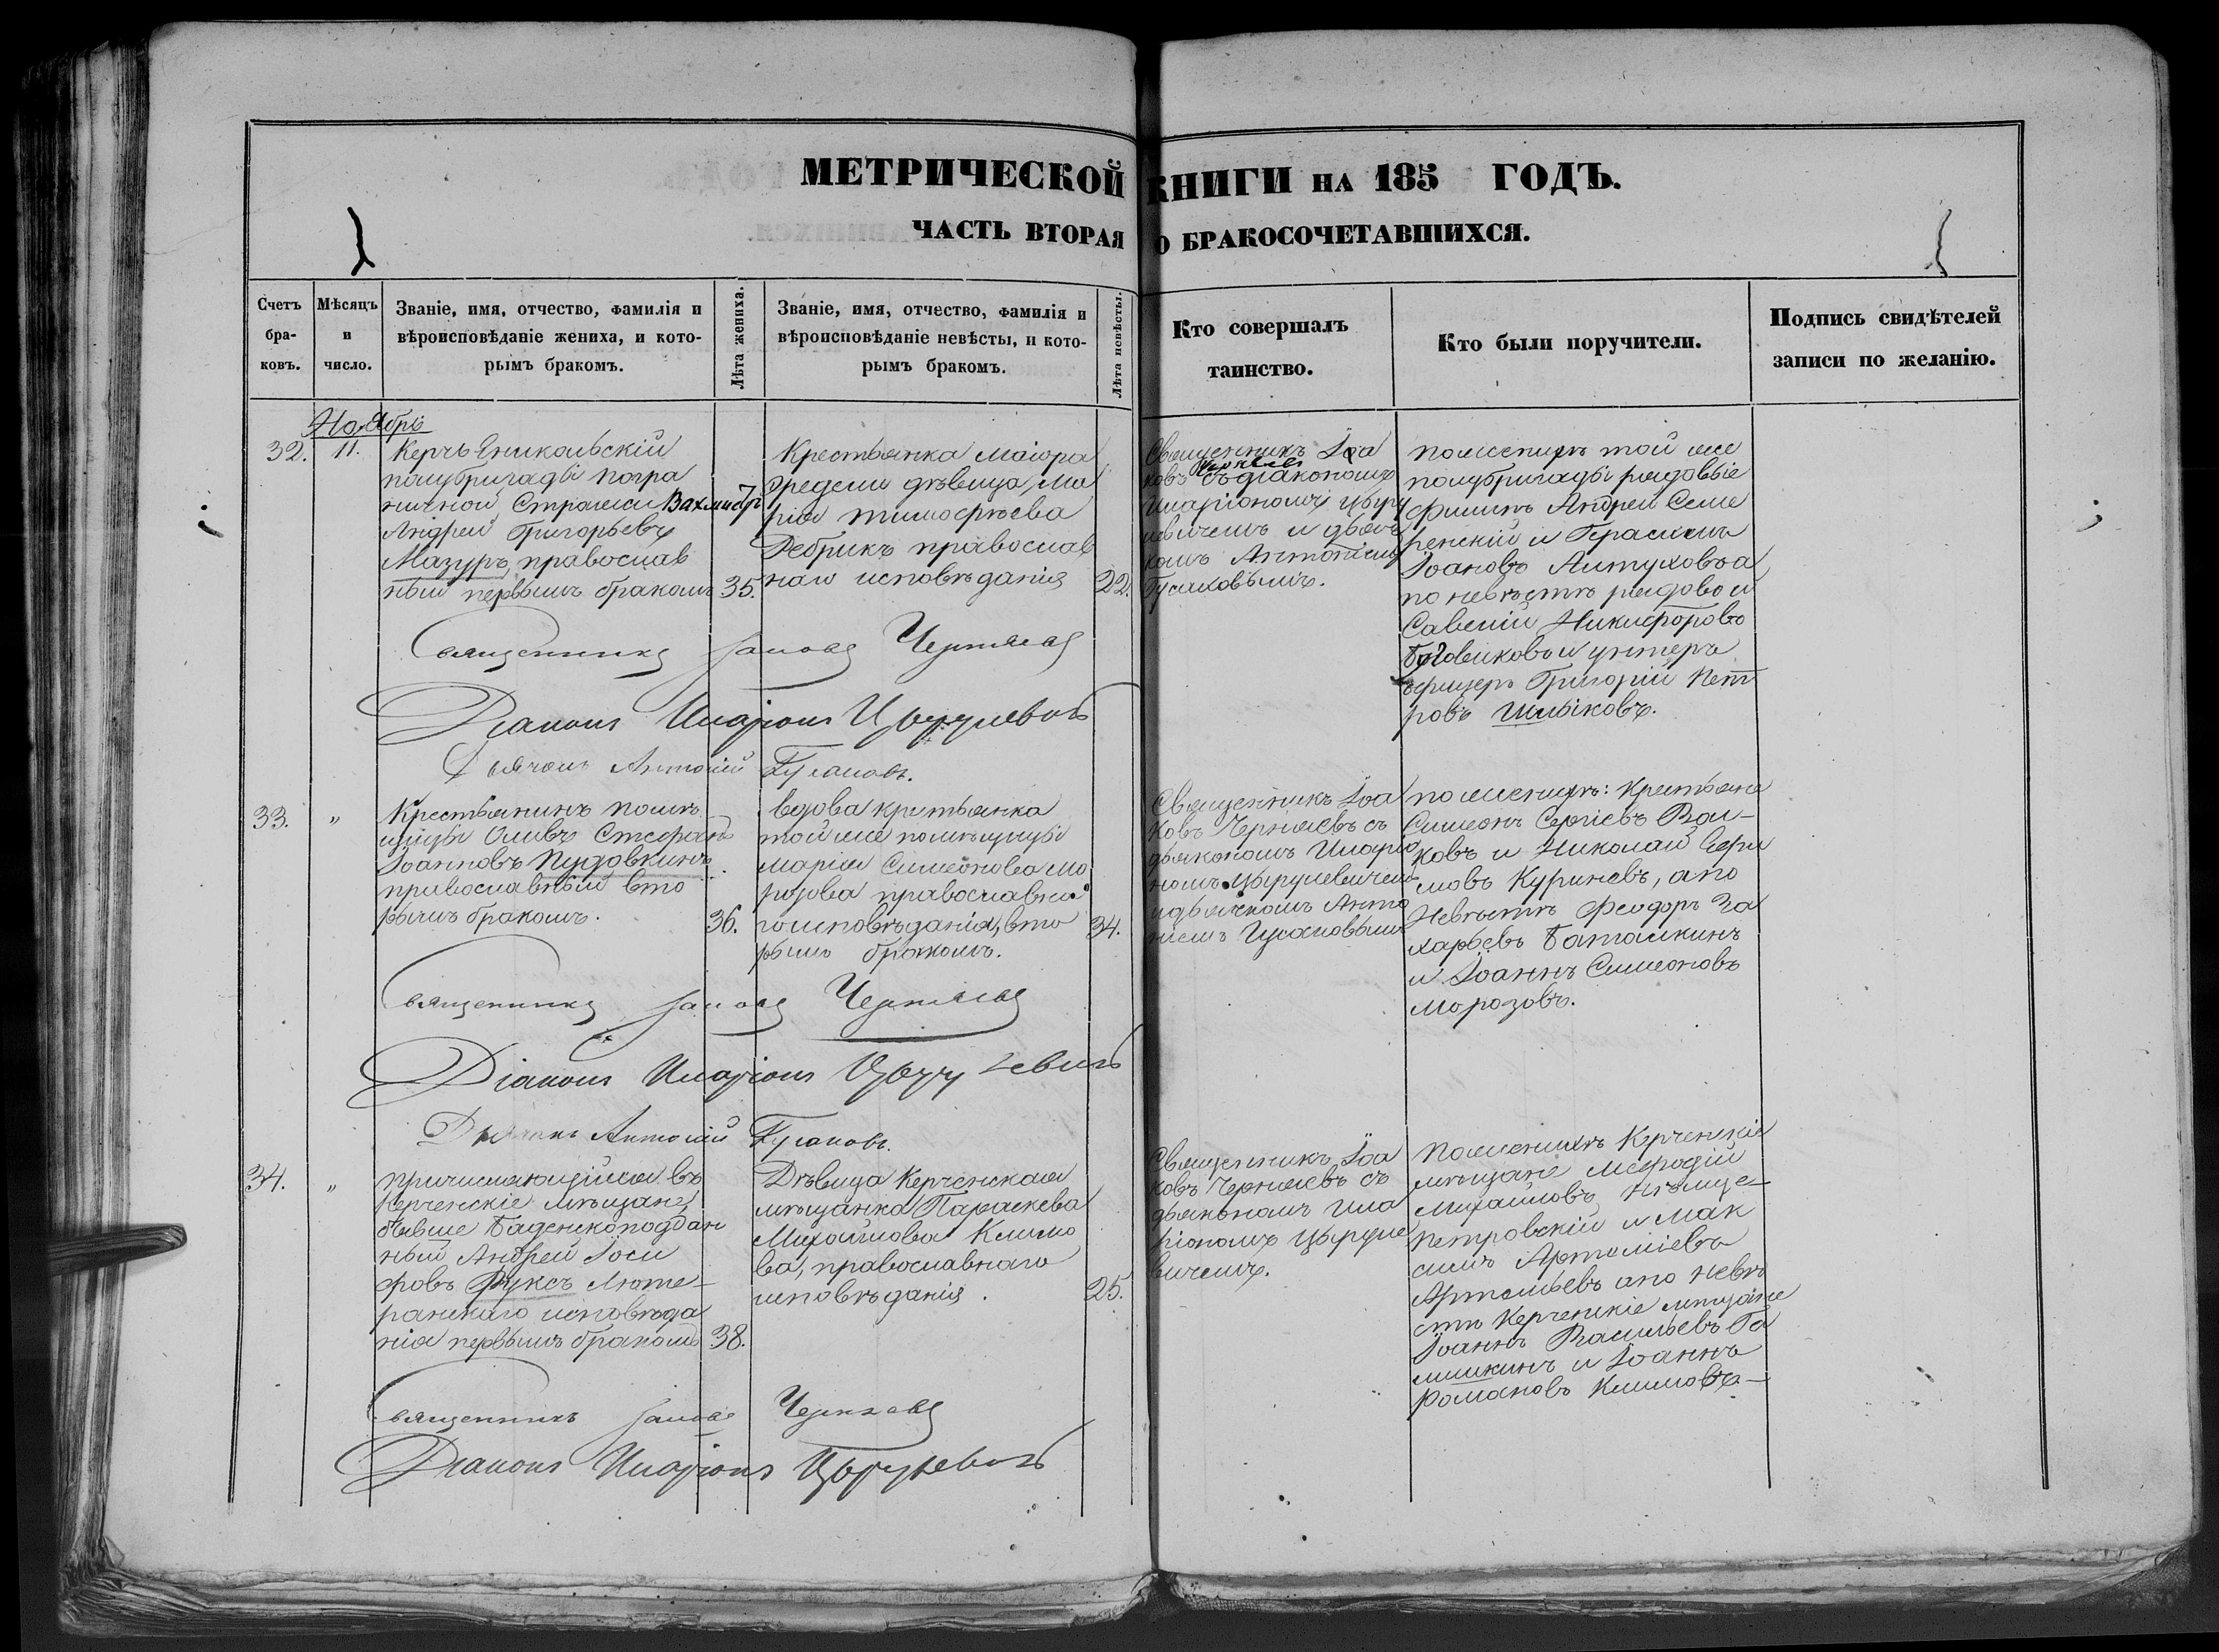 МЕТРИЧЕСКОЙ КНИГИ НА 185 ГОДЪ.
ЧАСТЬ ВТОРАЯ О БРАКОСОЧЕТАВШИХСЯ.
Счетъ
бра-
ковъ.
Мѣсяцъ
и
число.
Званіе, имя, отчество, фамилія и
вѣроисповѣданіе жениха, и кото-
рымъ бракомъ.
Лѣта жениха.
Званіе, имя, отчество, фамилія и
вѣроисповѣданіе невѣсты, и кото-
рымъ бракомъ.
Лѣта невѣсты.
Кто совершалъ
таинство.
Кто были поручители.
Подпись свидѣтелей
записи по желанію.
Ноябрь
32.
11.
Керчь Еникольскій
полубригады погра
ничной Стражи Вахмистръ
Андрей Григорьевъ
Мазуръ, православ
ный первымъ бракомъ
35.
Крестьянка Маіора
дѣвица, Ма
рія Тимофѣева
Ребрикъ православ
наго исповѣданія
22.
Священникъ Іа
ковъ Черняевъ съ діакономъ
Иларіономъ Цыру
левичемъ и дьяч
комъ Антоніемъ
Гусаковымъ.
по женихѣ той же
полубригады рядовые
Андрей Семе
ренскій и Герасимъ
Іоановъ а
по невѣстѣ рядовой
Савелій Никифоровъ
и унтеръ
офицеръ Григорій Пет
ровъ Шлыковъ.
Священникъ Іаковъ Черняевъ
Діаконъ Иларіонъ Цырулевичъ
Дьячекъ Антоній Гусаковъ.
33.
"
Крестьянинъ помѣ
щицы Оливъ Стефанъ
Іоанновъ Пудовкинъ
православный вто
рымъ бракомъ.
36.
вдова крестьянка
той же помѣщицы
Марія Симеонова Мо
розова православна
го исповѣданія, вто
рымъ бракомъ.
34.
Священникъ Іа
ковъ Черняевъ съ
дьякономъ Иларіо
номъ Цырулевичемъ
и дьячкомъ Анто
ніемъ Гусаковымъ
по женихѣ: крестьяне
Симеонъ Сергіевъ Вол-
ковъ и Николай Ефи
мовъ Куриневъ, а по
Невѣстѣ Феодоръ За
харьевъ Баташкинъ
и Іоаннъ Симеоновъ
Морозовъ.
Священникъ Іаковъ Черняевъ
Діаконъ Иларіонъ Цырулевичъ
Дьячекъ Антоній Гусаковъ.
34.
"
Причисляющійся въ
Керченскіе мѣщане,
бывше Баденскоподдан
ный Андрей Іоси
фовъ Фуксъ Люте-
ранскаго исповѣда
нія первымъ бракомъ
38.
Дѣвица Керченская
мѣщанка Параскева
Михайлова Климо
ва, православнаго
исповѣданія.
25.
Священникъ Іа
ковъ Черняевъ съ
дьякономъ Ила
ріономъ Цыруле
вичемъ.
По женихѣ Керченскіе
мѣщане Мефодій
Михайловъ
Петровскій и Мак
симъ Артеміевъ
Артемьевъ а по невѣ
стѣ Керченскіе мѣщане
Іоаннъ Васильевъ Га
лушкинъ и Іоаннъ
Романовъ Климовъ.-
Священникъ Іаковъ Черняевъ
Діаконъ Иларіонъ Цырулевичъ